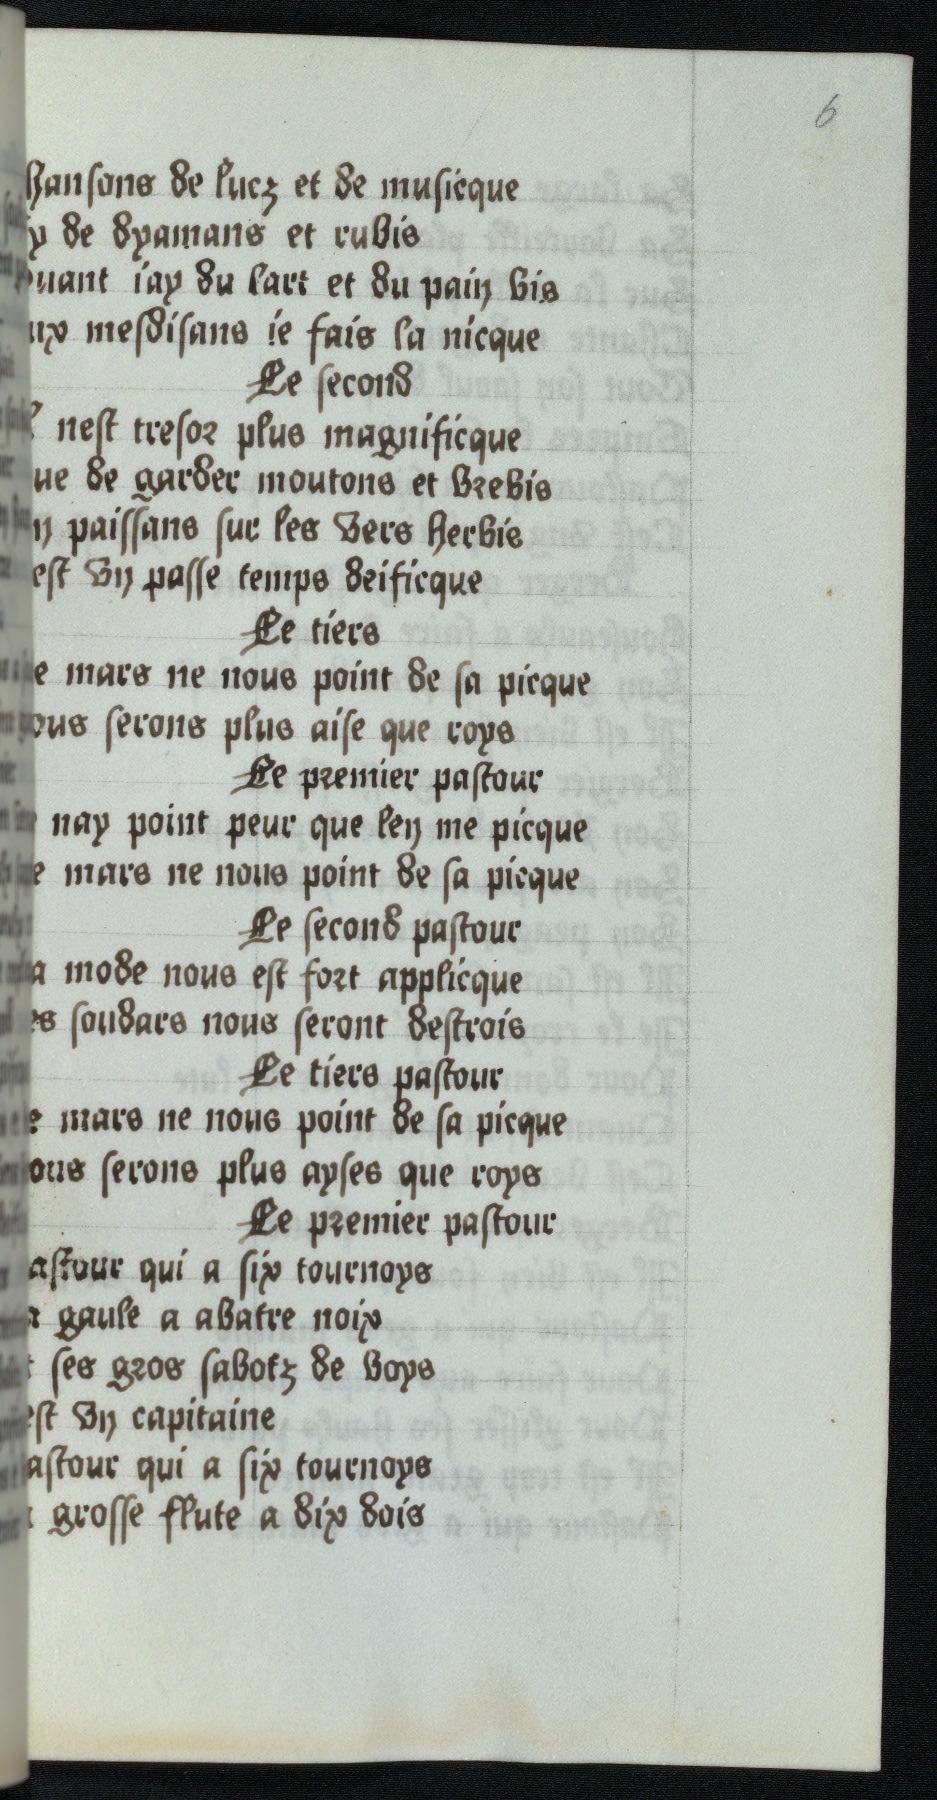 6
hansons de lucz et de musicque
y de dyamans et rubis
uant iay du lart et du pain bis
ux mesdisans ie fais la nicque
Le second
l nest tresor plus magnificque
ue de garder moutons et brebis
n paissans sur les vers herbis
est vn passe temps deificque
Le tiers
e mars ne nous point de sa picque
ous serons plus aise que roys
Le premier pastour
nay point peur que len me picque
e mars ne nous point de sa picque
Le second pastour
a mode nous est fort applicque
es soudars nous seront destrois
Le tiers pastour
e mars ne nous point de sa picque
ous serons plus ayses que roys
Le premier pastour
astour qui a six tournoys
a gaule a abatre noix
t ses gros sabotz de boys
est vn capitaine
astour qui a six tournoys
grosse flute a dix dois